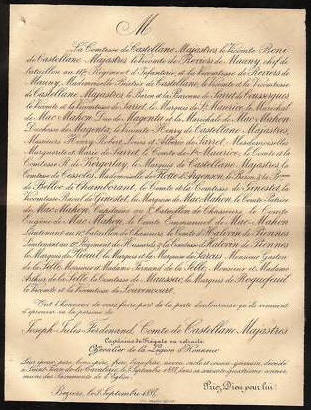 M
La Comtesse de Castellane Majastres, le Vicomte Boni
de Castellane Majastres, le Vicomte de Reviers de Mauny, chef de
bataillon au Régiment d'Infanterie, et la Vicomtesse de Reviers de
Mauny, Mademoiselle Béatrix de Castellane, le Vicomte et la Vicomtesse
de Castellane Majastres, le Baron et la Baronne de Sarret de Coussergues,
le Vicomte et la Vicomtesse de Sarret, le Marquis de St Maurice, le Maréchal
de Mac-Mahon, Duc de Magenta, et la Maréchale de Mac-Mahon,
Duchesse de Magenta, le Vicomte Henry de Castellane Majastres,
Messieurs Henry, Robert, Louis et de Sarret, Mesdemoiselles
Marguerite et Marie de Sarret, le Comte de St Maurice, le Comte et la
Comtesse R. de Kergorlay, le Marquis de Castellane Majastres, la
Comtesse de Cessoles, Mademoiselle de Flotte d'Argenson, le Baron &
de Belloc de Chamborant, le Comte et la Comtesse de Ginestet, la
Vicomtesse Raoul de Ginestet, le Marquis de Mac-Mahon, le Comte Patrice
de Mac-Mahon, Capitaine au Bataillon de Chasseurs, le Comte
Eugène de Mac-Mahon, le Comte Emmanuel de Mac-Mahon,
Lieutenant au Bataillon de Chasseurs, le Comte d'Halevin de Piennes
Lieutenant au Régiment de Hussards, & la Comtesse d'Halevin de Piennes
le Marquis de le Marquis et la Marquise de Monsieur Gaston
de la Selle, Monsieur et Madame Fernand de la Selle, Monsieur et Madame
Arthur de la Selle, la Comtesse de Maussac, le Marquis de Roquefeuil
le Vicomte et la Vicomtesse de
Ont l'honneur de vous faire part de la perte douloureuse qu'ils viennent
d'éprouver en la personne de
Joseph Jules Ferdinand, Comte de Castellane Majastres
Capitaine de Frégate en retraite
Officier de la Légion d'Honneur
Leur époux, père, beau-père, frère, beau-frère, neveu, oncle et cousin-germain, décédé
à Saint-Jean de la le 8 Septembre 188 dans sa année, muni
des Sacrements de l'Église.
Priez Dieu pour lui!
Béziers, le 8 Septembre 188